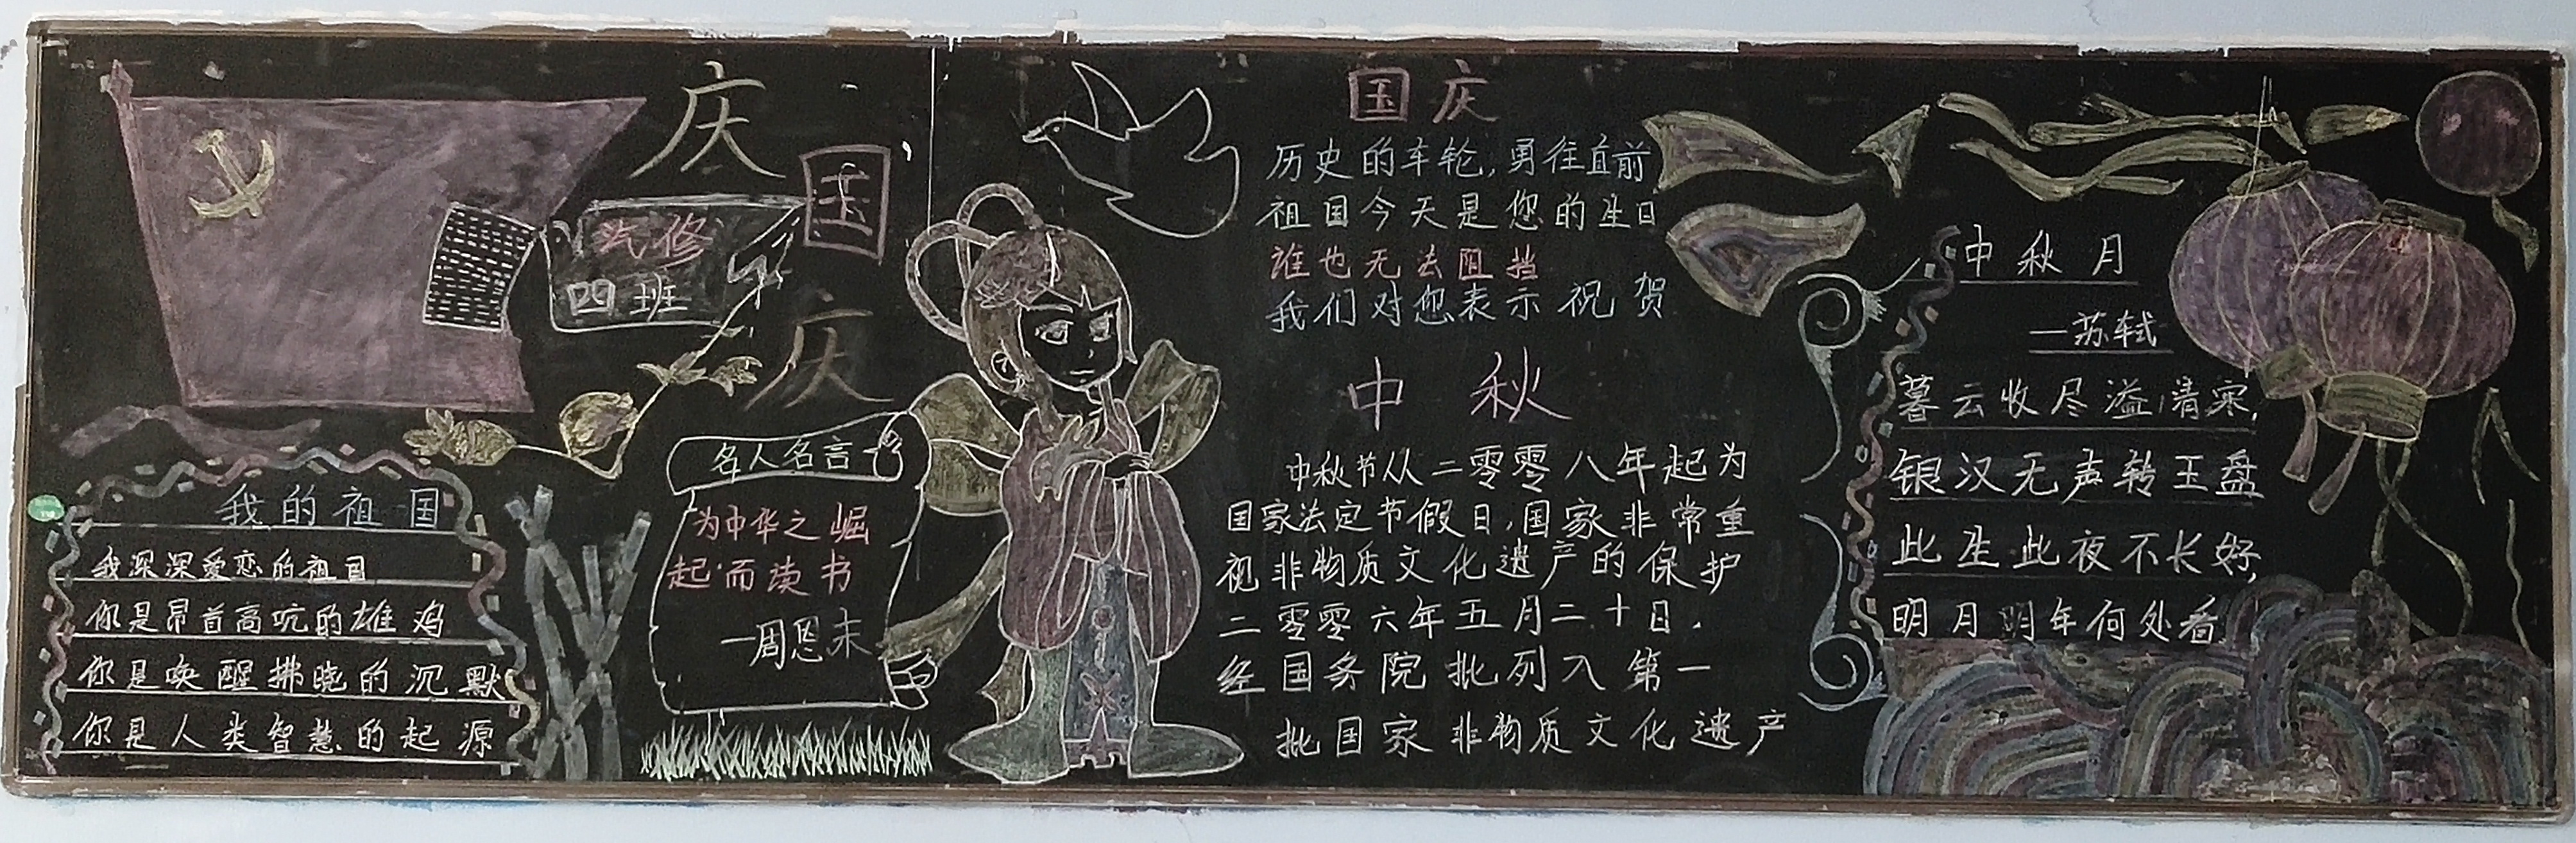 庆
国
庆
汽修
四班
我的祖国
我深深爱恋的祖国
你是昂首高吭的雄鸡
你是唤醒拂晓的沉默
你是人类智慧的起源
名人名言
为中华之崛
起而读书
一周恩来
国庆
历史的车轮,勇往直前
祖国今天是您的生日
谁也无法阻挡
我们对您表示祝贺
中秋
中秋节从二零零八年起为
国家法定节假日,国家非常重
视非物质文化遗产的保护
二零零六年五月二十日.
经国务院批列入第一
批国家非物质文化遗产
中秋月
一苏轼
暮云收尽溢清寒,
银汉无声转玉盘
此生此夜不长好,
明月明年何处看